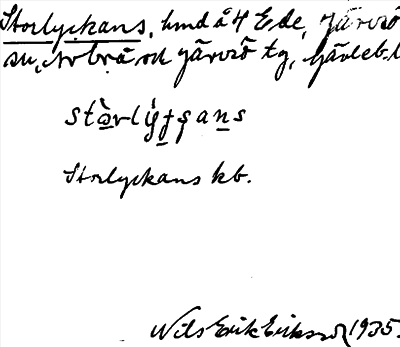 Storlyckans, hmd å 4 Ede, Järvsö
sn, N. brå och Järvsö tg, Gävleb. l
Storlyckans kb.
Nils Erik Eriksson 1935.